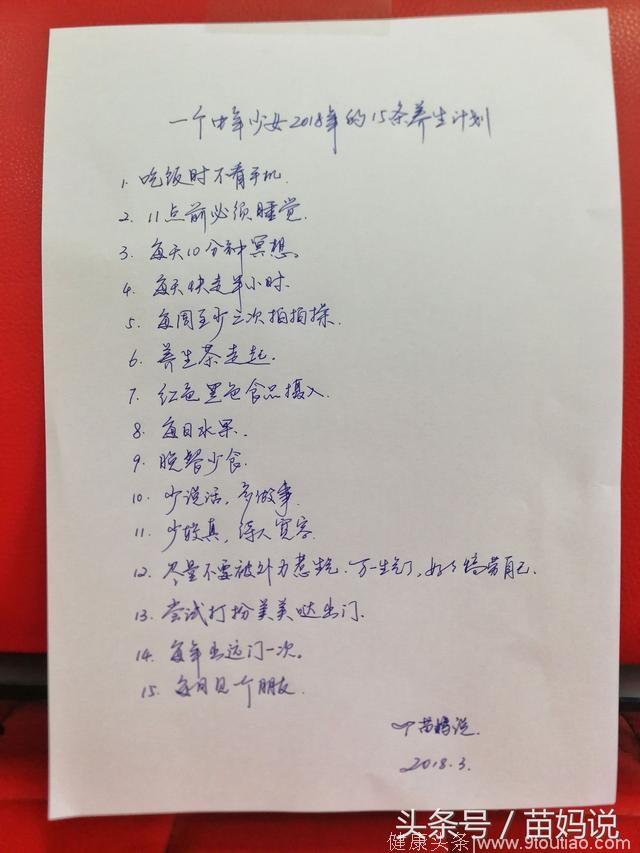 一个中年少女2018年的15条养生计划
1. 吃饭时不看手机.
2. 11点前必须睡觉.
3. 每天10分钟冥想。
4. 每天快走半小时.
5. 每周至少三次拍拍操.
6. 养生茶走起.
7. 红色黑色食品摄入.
8. 每日水果.
9. 晚餐少食.
10. 少说话，多做事.
11. 少较真，待人宽容.
12. 尽量不要被外力惹生气.万一生气了,好好犒劳自己.
13. 尝试打扮美美哒出门.
14. 每年出远门一次。
15. 每月见一个朋友.
苗妈说.
2018.3.
头条号／苗妈说
健康头条 www.9toutiao.com